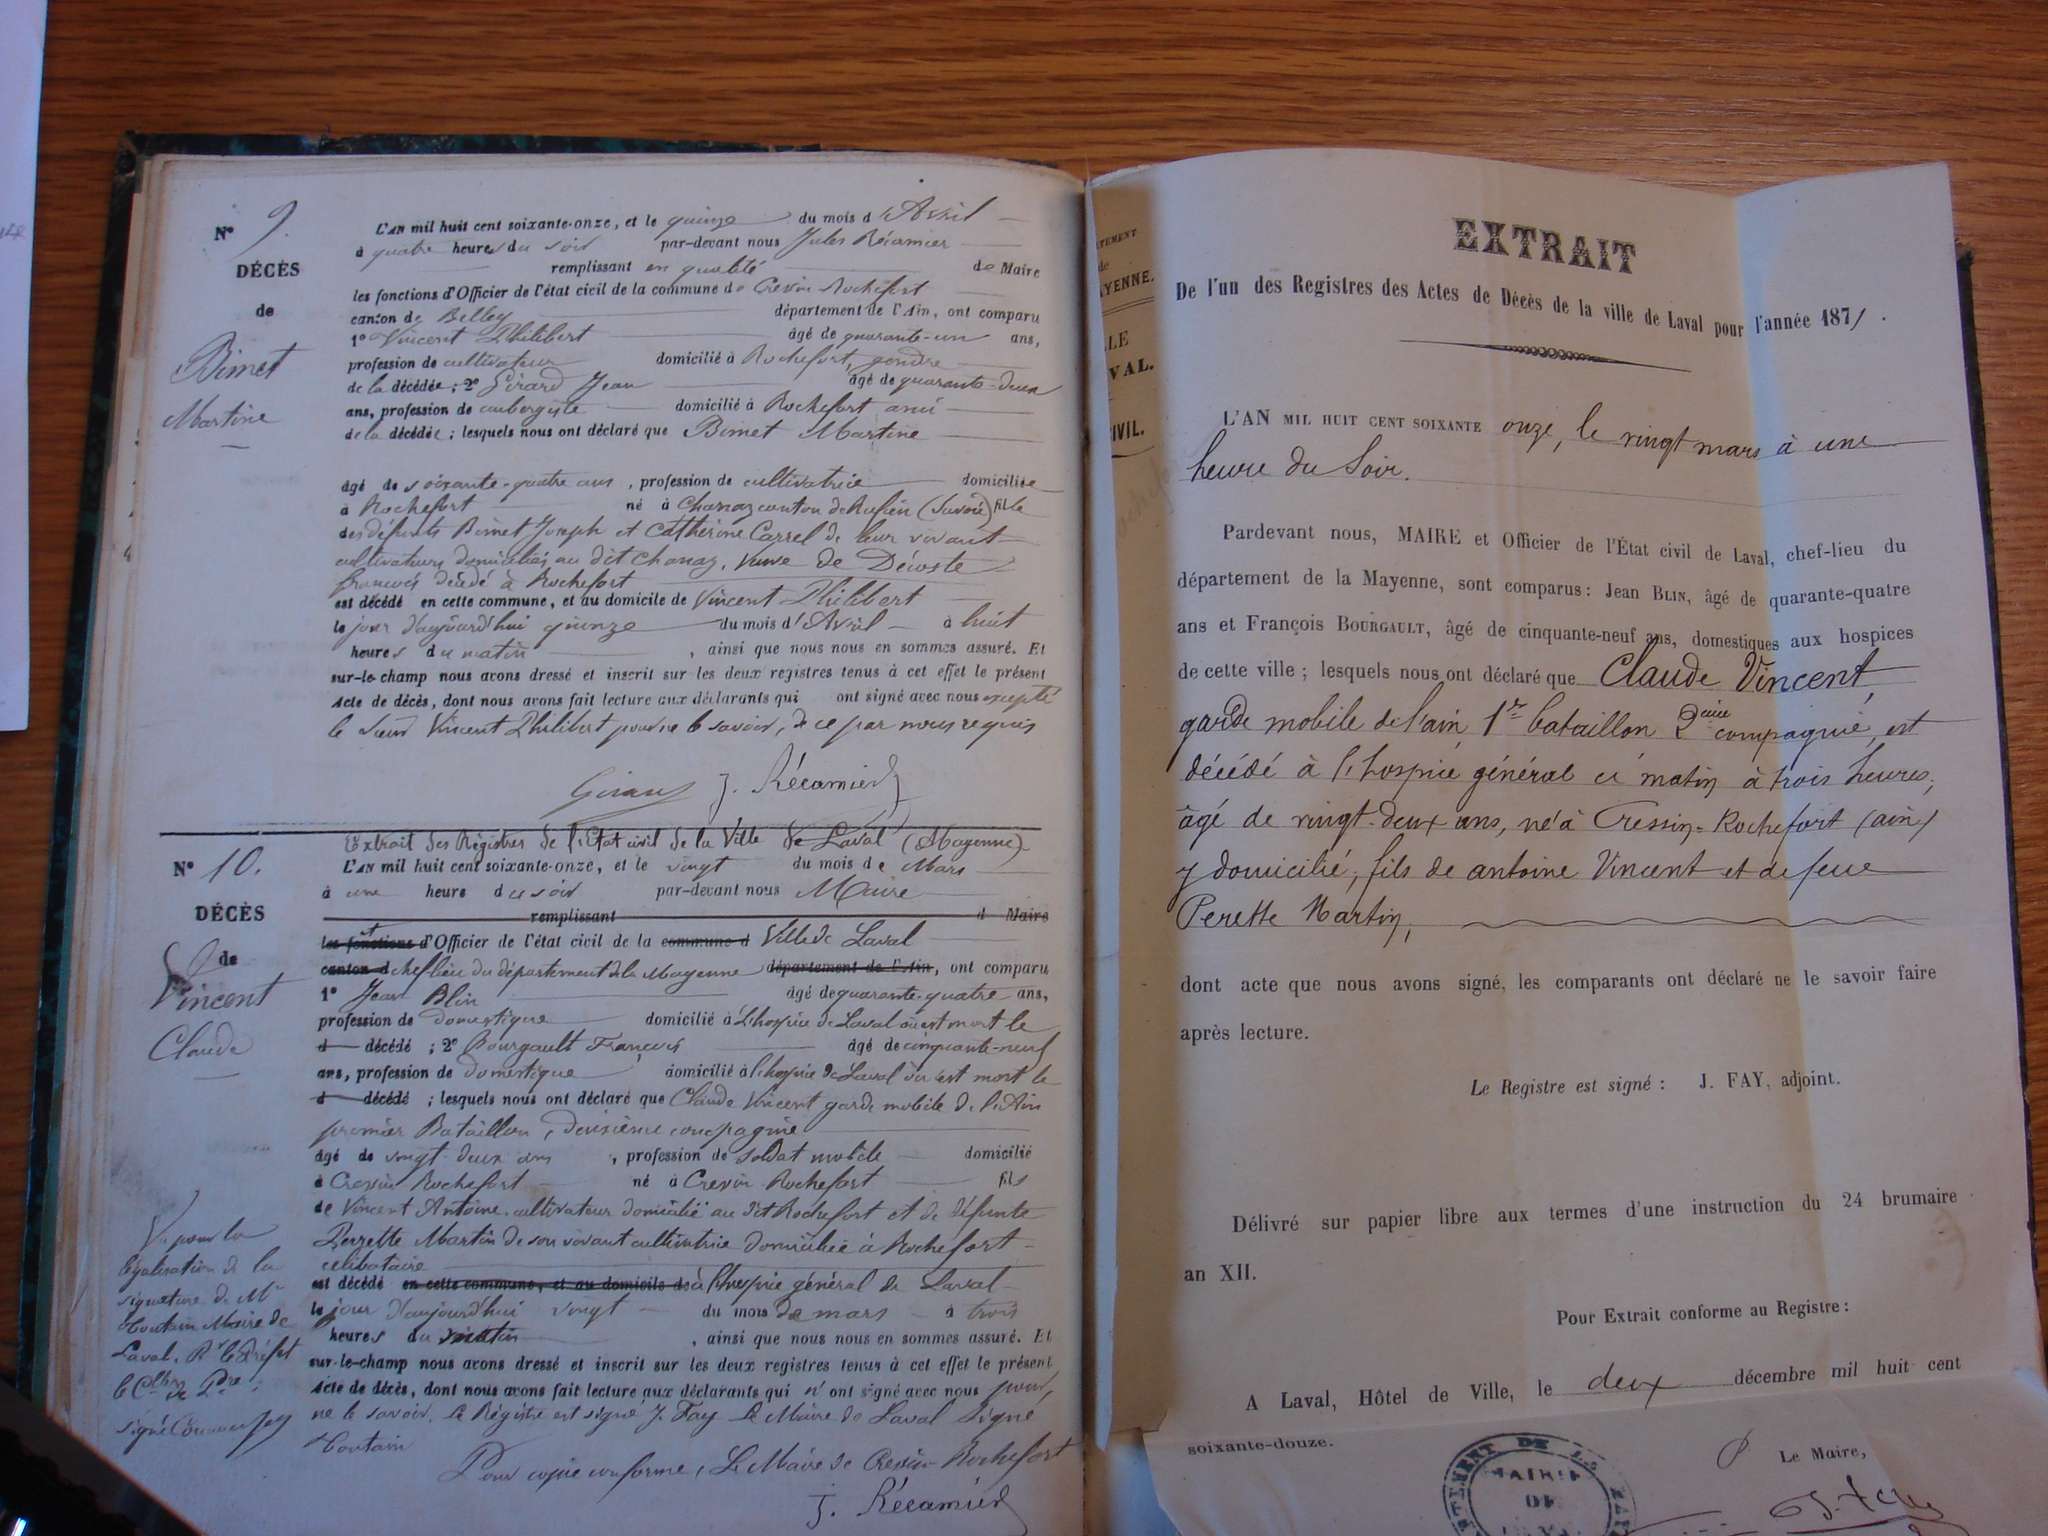 N° 9.
DÉCÈS
de
Bimet
Martine
L'AN mil huit cent soixante-onze, et le quinze du mois d'Avril
à quatre heures du soir par-devant nous Jules Récamier
remplissant en qualité de Maire
les fonctions d'Officier de l'état civil de la commune de Cressin Rochefort
canton de Belley département de l'Ain, ont comparu
1° Vincent Philibert âgé de quarante-un ans,
profession de cultivateur domicilié à Rochefort, gendre
de la décédée ; 2° Girard Jean âgé de quarante-deux
ans, profession de aubergiste domicilié à Rochefort ami
de la décédée ; lesquels nous ont déclaré que Bimet Martine
âgé de soixante-quatre ans, profession de cultivatrice domiciliée
à Rochefort né à Chanaz canton de Ruffieu (Savoie) fille
des défunts Bimet Joseph et Catherine Carrel de leur vivant
cultivateurs domiciliés au dit Chanaz, veuve de Décoste
françois décédé à Rochefort
est décédé en cette commune, et au domicile de Vincent Philibert
le jour d'aujourd'hui quinze du mois d'Avril à huit
heures du matin, ainsi que nous nous en sommes assuré. Et
sur-le-champ nous avons dressé et inscrit sur les deux registres tenus à cet effet le présent
Acte de décès, dont nous avons fait lecture aux déclarants qui ont signé avec nous excepté
le sieur Vincent Philibert pour ne le savoir, de ce par nous requis
Girard J. Récamier
Extrait des Régistres de l'Etat civil de la Ville de Laval (Mayenne)
N° 10.
DÉCÈS
de
Vincent
Claude
L'AN mil huit cent soixante-onze, et le vingt du mois de Mars
à une heure du soir par-devant nous Maire
remplissant d Maire
les fonctions et d'Officier de l'état civil de la commune d Ville de Laval
canton d chef lieu du département de la Mayenne département de l'Ain, ont comparu
1° Jean Blin âgé de quarante-quatre ans,
profession de domestique domicilié à l'hospice de Laval où est mort le
d décédé ; 2° Bourgault François âgé de cinquante-neuf
ans, profession de domestique domicilié à l'hospice de Laval où est mort le
d décédé ; lesquels nous ont déclaré que Claude Vincent garde mobile de l'Ain
premier Bataillon, deuxième compagnie
âgé de vingt deux ans, profession de soldat mobile domicilié
à Cressin Rochefort né à Cressin Rochefort fils
de Vincent Antoine cultivateur domicilié au dit Rochefort et de défunte
Perrette Martin de son vivant cultivatrice domiciliée à Rochefort
célibataire
est décédé en cette commune, et au domicile de à l'hospice général de Laval
le jour d'aujourd'hui vingt du mois de mars à trois
heures du matin, ainsi que nous nous en sommes assuré. Et
sur-le-champ nous avons dressé et inscrit sur les deux registres tenus à cet effet le présent
Acte de décès, dont nous avons fait lecture aux déclarants qui n'ont signé avec nous pour
ne le savoir, le Régistre est signé J. Fay Le Maire de Laval Signé
Toutain
Vu pour la
légalisation de la
signature de Mr
Toutain Maire de
Laval, Pr le Préfet
le Cller de Pre :
signé
Pour copie conforme, Le Maire de Cressin-Rochefort
J. Récamier
TEMENT
de
AYENNE.
LLE
VAL.
CIVIL.
EXTRAIT
De l'un des Registres des Actes de Décès de la ville de Laval pour l'année 1871.
L'AN MIL HUIT CENT SOIXANTE onze, le vingt mars à une
heure du Soir.
Pardevant nous, MAIRE et Officier de l'État civil de Laval, chef-lieu du
département de la Mayenne, sont comparus : Jean BLIN, âgé de quarante-quatre
ans et François BOURGAULT, âgé de cinquante-neuf ans, domestiques aux hospices
de cette ville ; lesquels nous ont déclaré que Claude Vincent,
garde mobile de l'ain, 1er bataillon 2eme compagnie, est
décédé à l'hospice général ce matin à trois heures,
âgé de vingt-deux ans, né à Cressin-Rochefort (ain)
y domicilié, fils de antoine Vincent et de feue
Perette Martin,
dont acte que nous avons signé, les comparants ont déclaré ne le savoir faire
après lecture.
Le Registre est signé : J. FAY, adjoint.
Délivré sur papier libre aux termes d'une instruction du 24 brumaire
an XII.
Pour Extrait conforme au Registre :
A Laval, Hôtel de Ville, le deux décembre mil huit cent
soixante-douze.
Le Maire,
MAIRIE
DE